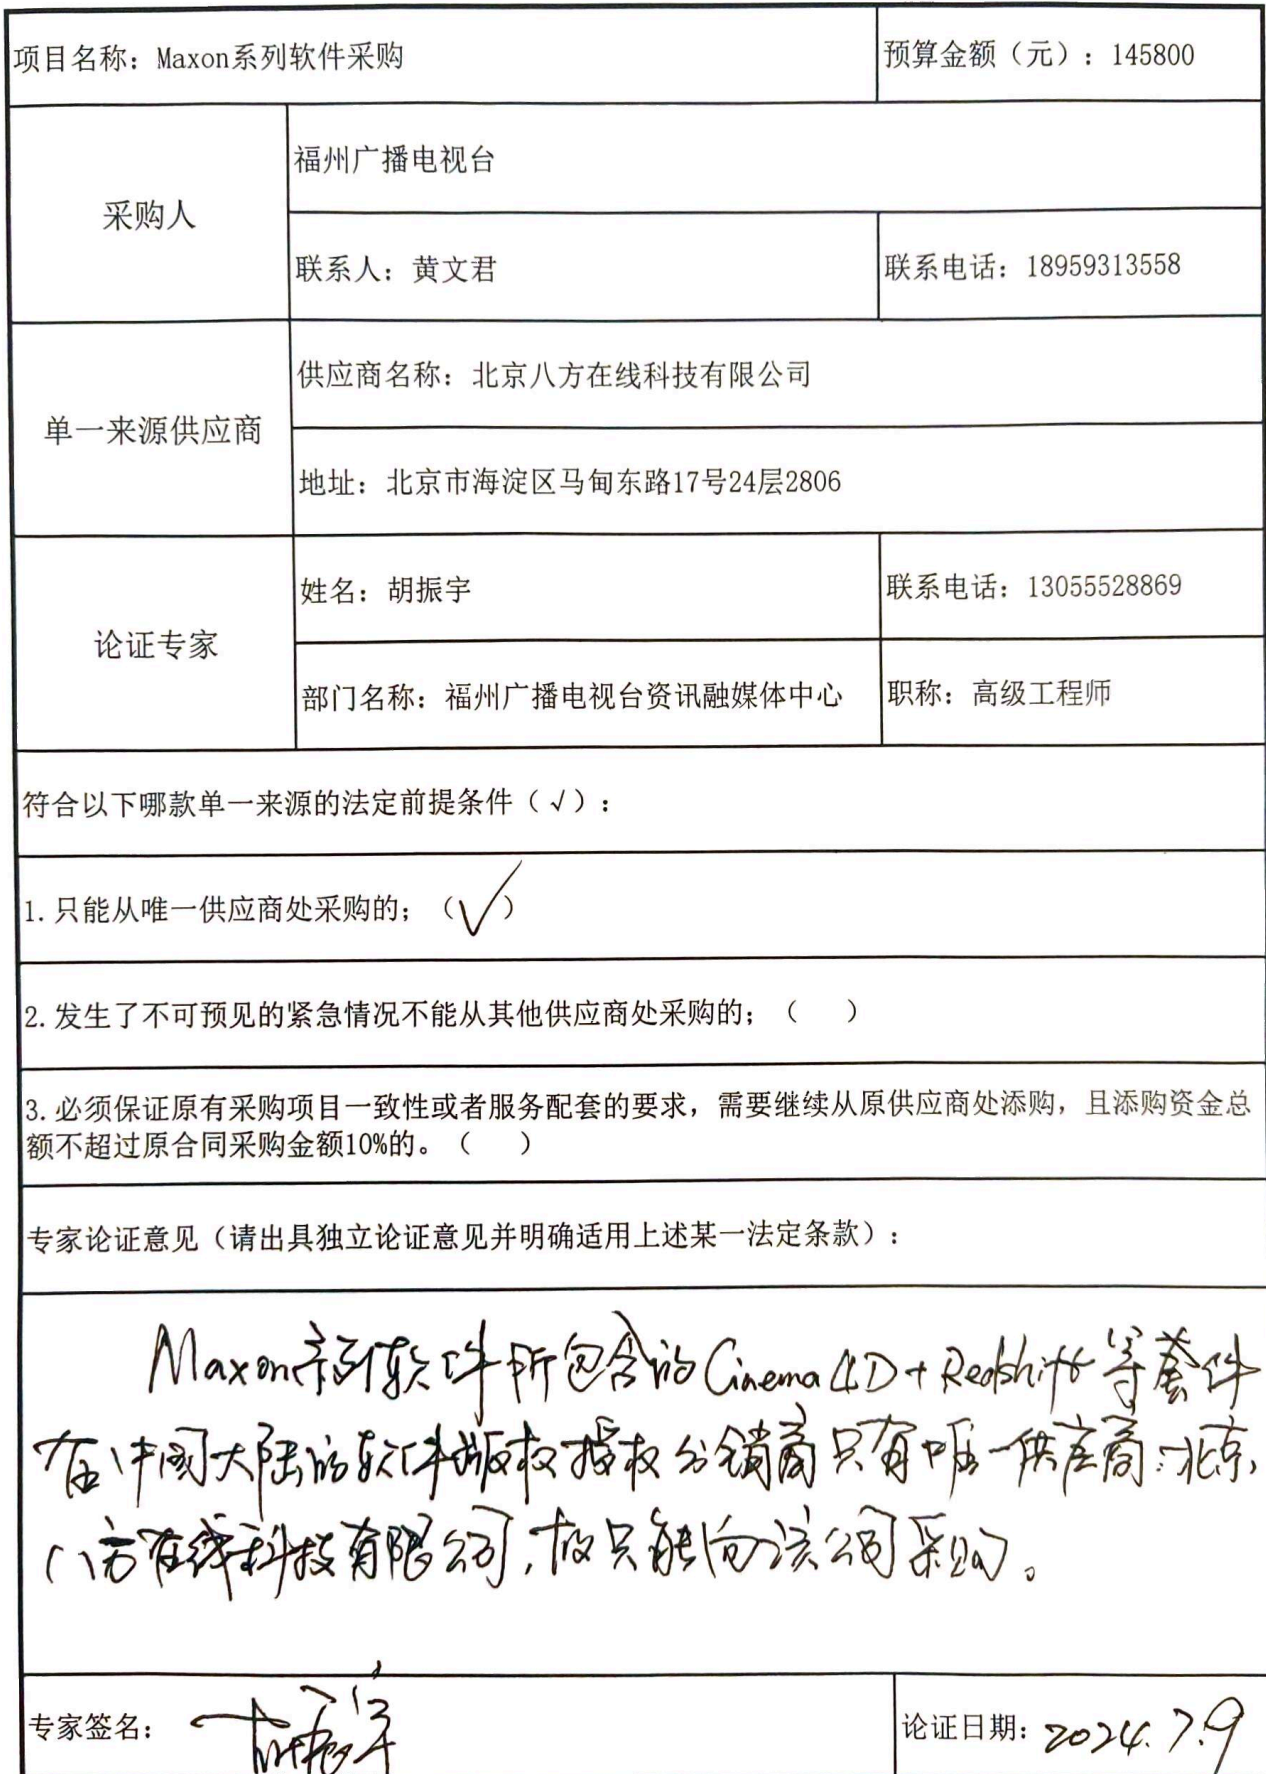 项目名称：Maxon系列软件采购
预算金额（元）：145800
采购人
福州广播电视台
联系人：黄文君
联系电话：18959313558
单一来源供应商
供应商名称：北京八方在线科技有限公司
地址：北京市海淀区马甸东路17号24层2806
论证专家
姓名：胡振宇
联系电话：13055528869
部门名称：福州广播电视台资讯融媒体中心
职称：高级工程师
符合以下哪款单一来源的法定前提条件（√）：
1.只能从唯一供应商处采购的；（√）
2.发生了不可预见的紧急情况不能从其他供应商处采购的；（ ）
3.必须保证原有采购项目一致性或者服务配套的要求，需要继续从原供应商处添购，且添购资金总
额不超过原合同采购金额10%的。（ ）
专家论证意见（请出具独立论证意见并明确适用上述某一法定条款）：
Maxon系列软件所包含的Cinema 4D+Redshift等套件
在中国大陆的软件版权授权分销商只有唯一供应商：北京
八方在线科技有限公司，故只能向该公司采购。
专家签名：胡振宇
论证日期：2024.7.9